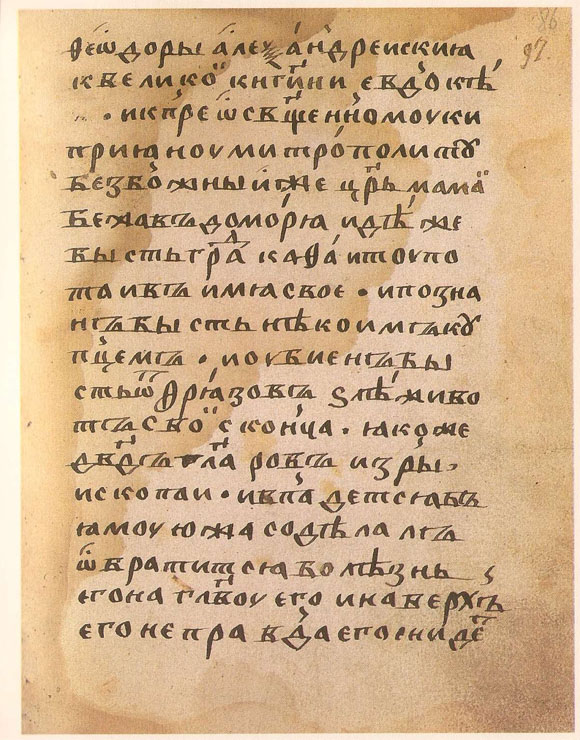 ѳеѡ҆доры а҆леѯа́ндреискиꙗ
к великоⷪ҇ кнгⷩ҇ини евдокѣѝ
· и к преѡ҆свщⷩ҇енномоу ки
приꙗноу митро́политꙋ
безбожны иже црⷭ҇ь мамаⷤ
бежавъ до мо́рꙗ идѣ же
бысть граⷣ каѳа́ и тоу по
таивъ имꙗ свое · и позна
нъ бысть нѣкоимъ кꙋ
пцемъ · и оубиенъ бы
сть ѿ ѳрꙗзовъ ѕлѣ живо
тъ свои сконча · ꙗкоже
двдⷣъ глⷭ҇а ровъ изры́
ископаи · и впа́детсѧ въ
ꙗмоу юже содѣлалъ
ѡ҆братитсѧ болѣзнь
его на главоу его и на верхъ
его неправда его снидеⷮ
86
97.